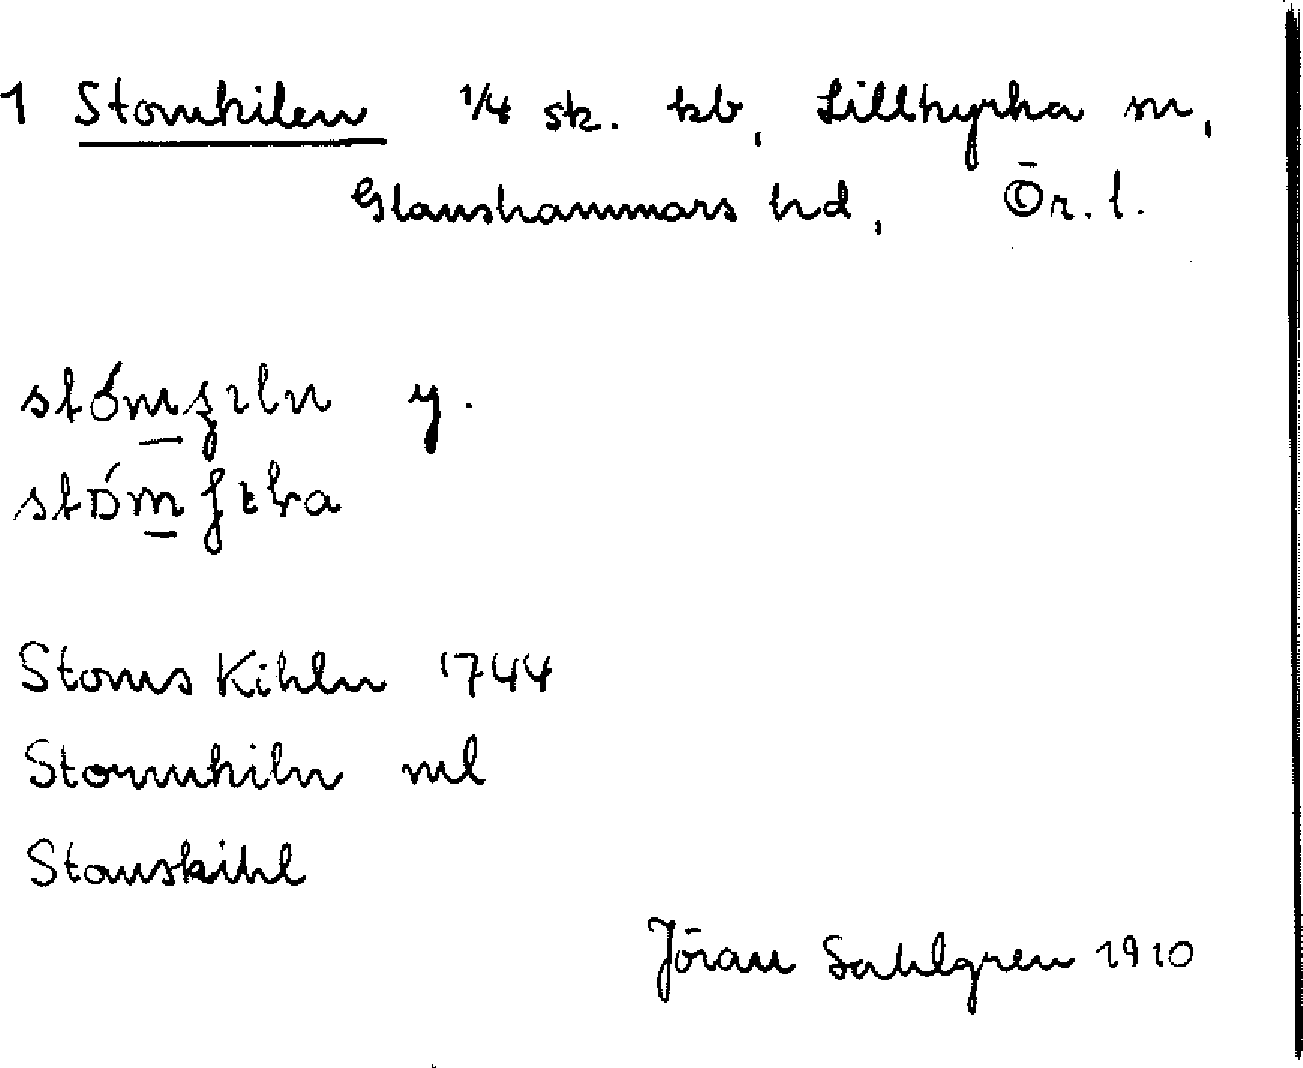 1 Stomkilen 1/4 sk. kb, Lillkyrka sn,
Glanshammars hd, Ör. l.
y.
Stoms Kihln 1744
Stomkiln ml
Stomskihl
Jöran Sahlgren 1910